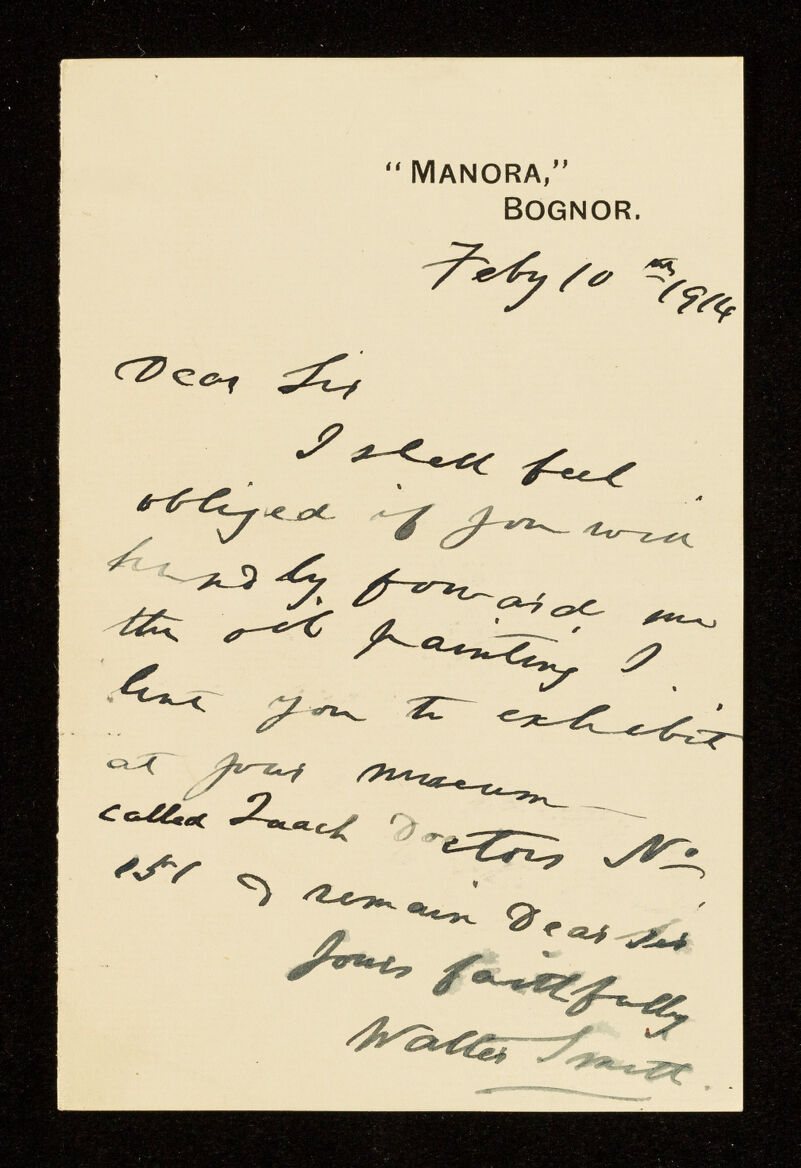 "MANORA,"
BOGNOR.
Feby 10th 1914
Dear Sir
I shall feel
obliged if you will
kindly forward me
the oil painting I
lent you to exhibit
at your museum —
called Quack Doctors No
151 & remain Dear Sir
Yours faithfully
Walter Smith.